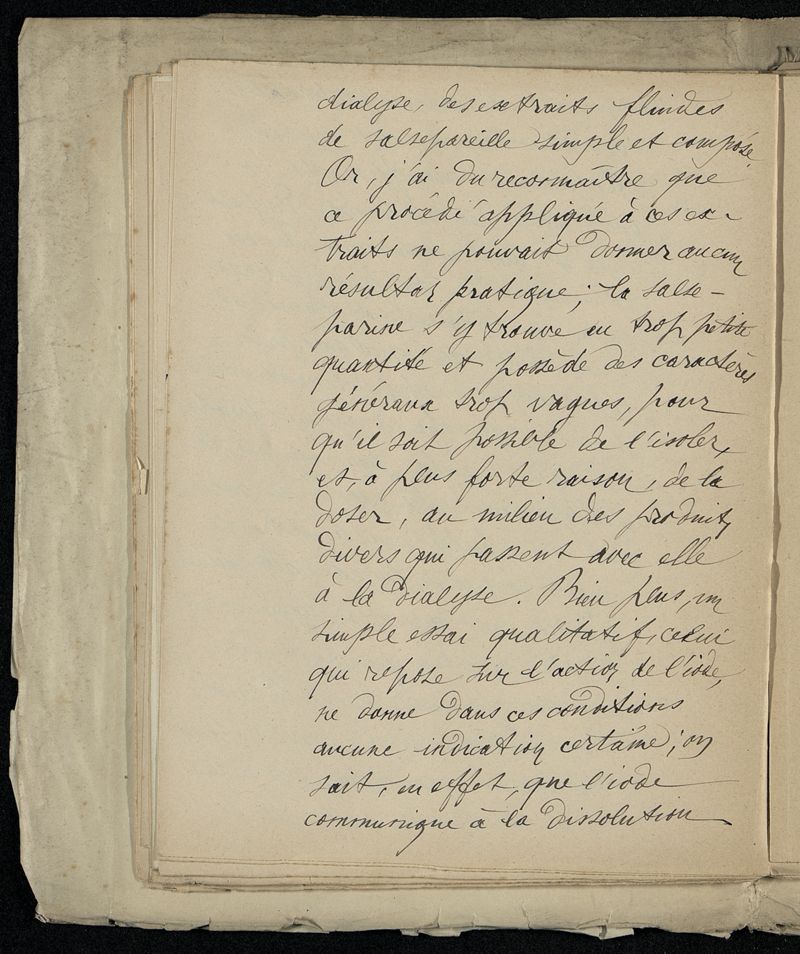 dialyse, des extraits fluides
de salsepareille simple et composé.
Or, j'ai du reconnaître que
ce procédé appliqué à ces ex-
traits ne pouvait donner aucun
résultat pratique; la salse-
parine s'y trouve en trop petite
quantité et possède des caractères
généraux trop vagues, pour
qu'il soit possible de l'isoler,
et, à plus forte raison, de la
doser, au milieu des produits
divers qui passent avec elle
à la dialyse. Bien plus, un
simple essai qualitatif, celui
qui repose sur l'action de l'iode,
ne donne dans ces conditions
aucune indication certaine; on
sait, en effet, que l'iode
communique à la dissolution